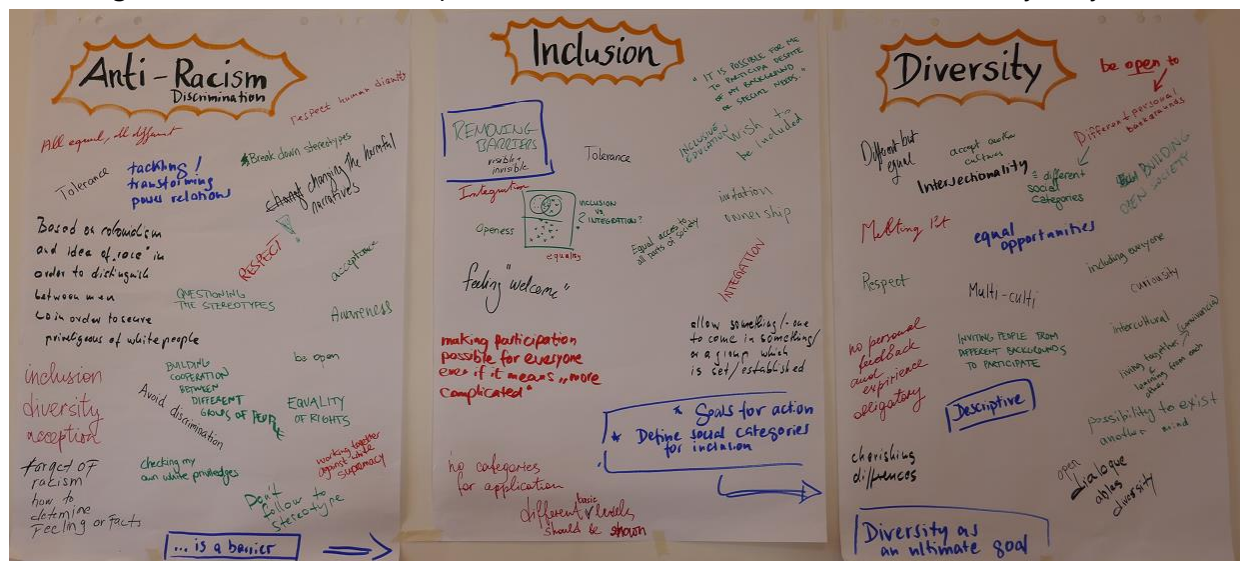 Anti-Racism
Discrimination
All equal, all different
respect human dignity
Tolerance
tackling!
transforming
power relations
Break down stereotypes
changing the harmful
narratives
Based on
and idea of "race" in
order to distinguish
between men
in order to secure
of white people
RESPECT!
acceptance
QUESTIONING
THE STEREOTYPES
Awareness
be open
inclusion
diversity
BUILDING
COOPERATION
BETWEEN
DIFFERENT
GROUPS OF PEOPLE
Avoid discrimination
EQUALITY
OF RIGHTS
target OF
racism
how to
detmine
Feeling or facts
checking my
own white priviledges
working together
against white
supremacy
Don't
follow to
stereotype
... is a barrier
Inclusion
"IT IS POSSIBLE FOR ME
TO PARTICIPA DESPITE
OF MY BACKGROUND
OR SPECIAL NEEDS."
REMOVING
BARRIERS
visible +
invisible
Tolerance
INCLUSIVE
EDUCATION
Wish to
be included
Integration
INCLUSION
VS
INTEGRATION?
Openess
equality
Equal access to
all parts of society
ownership
INTEGRATION
feeling "welcome"
making participation
possible for everyone
even if it means "more
complicated"
allow something/-one
to come in something/
or a group which
is set/established
* Goals for action
* Define social categories
for inclusion
no categories
for application
different basic levels
should be shown
Diversity
be open to
Different personal
backgrounds
Different but
equal
accept another
cultures
Intersectionality
different
social
categories
BUILDING
OPEN SOCIETY
Melting Pot
equal
opportunities
including everyone
Respect
Multi-culti
curiosity
no personal
feedback
and
expirience
obligatory
INVITING PEOPLE FROM
DIFFERENT BACKGROUNDS
TO PARTICIPATE
intercultural
living together
+
learning from each
other
Descriptive
possibility to exist
another mind
cherishing
differences
open
dialogue
ables
diversity
Diversity as
an ultimate goal